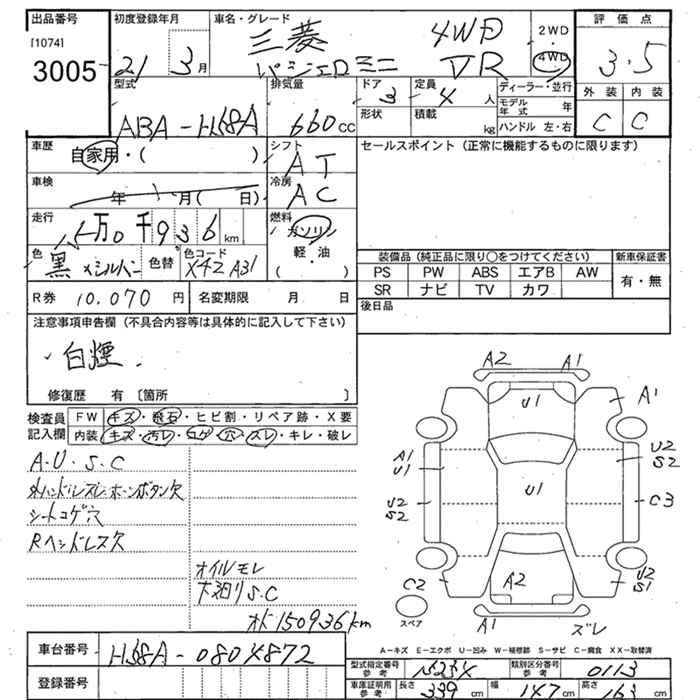 出品番号 初度登録年月 車名・グレード 2WD 評価点
[1074]
3005 21 3月 三菱 4WD 4WD 3.5
パジェロミニ VR 外装 内装
型式 排気量 ドア 定員 ディーラー・並行
3 4人 モデル年式 年
形状 積載 kg ハンドル 左・右 C C
ABA-H58A 660CC
車歴 自家用・( ) シフト AT セールスポイント (正常に機能するものに限ります)
車検 年 月( 日) 冷房 AC
走行 15万0千936km 燃料 ガソリン
軽・油
( )
色 黒 色替 色コード X42 A31
装備品 (純正品に限り○をつけてください) 新車保証書
PS PW ABS エアB AW 有・無
SR ナビ TV カワ
R券 10,070円 名変期限 月 日 後日品
注意事項申告欄 (不具合内容等は具体的に記入して下さい)
・白煙.
修復歴 有 〔箇所 〕
検査員記入欄 FW キズ・飛石・ヒビ割・リペア跡・X要
内装 キズ・汚レ・コゲ・穴・スレ・キレ・破レ
A.U.S.C
外ハンドルスレ ホーンボタン欠
シートコゲ穴
Rヘッドレス欠
オイルモレ
下廻りS.C
オド150936km
A2 A1
U1 A1
A1 U1 U2 S2
U1
U2 S2 C3
A2
C2 U2 S1
スペア A1 ズレ
A-キズ E-エクボ U-凹み W-補修跡 S-サビ C-腐食 XX-取替済
車台番号 H58A-0804872
登録番号
型式指定番号 参考 類別区分番号 参考 0113
車庫証明用 参考 長さ 339cm 幅 147cm 高さ cm